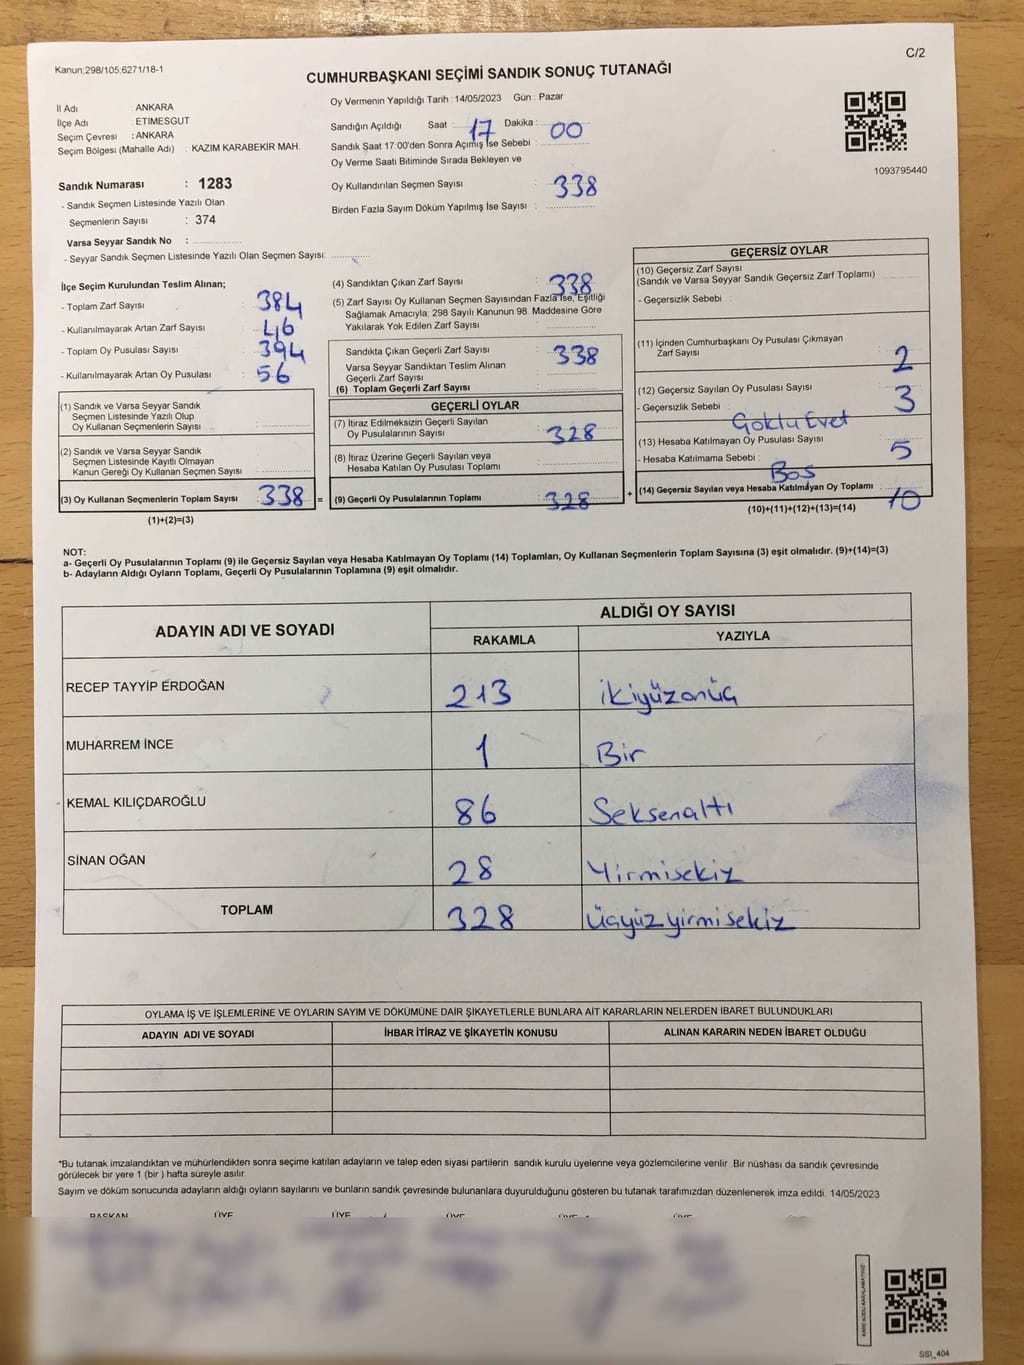 C/2
Kanun;298/105;6271/18-1
CUMHURBAŞKANI SEÇİMİ SANDIK SONUÇ TUTANAĞI
İl Adı : ANKARA
İlçe Adı : ETİMESGUT
Seçim Çevresi : ANKARA
Seçim Bölgesi (Mahalle Adı) : KAZIM KARABEKİR MAH.
Sandık Numarası : 1283
- Sandık Seçmen Listesinde Yazılı Olan
Seçmenlerin Sayısı : 374
Varsa Seyyar Sandık No :
- Seyyar Sandık Seçmen Listesinde Yazılı Olan Seçmen Sayısı:
Oy Vermenin Yapıldığı Tarih : 14/05/2023 Gün : Pazar
Sandığın Açıldığı Saat : 17 Dakika : 00
Sandık Saat 17:00'den Sonra Açımış İse Sebebi :
Oy Verme Saati Bitiminde Sırada Bekleyen ve
Oy Kullandırılan Seçmen Sayısı : 338
Birden Fazla Sayım Döküm Yapılmış İse Sayısı :
1093795440
İlçe Seçim Kurulundan Teslim Alınan;
- Toplam Zarf Sayısı : 384
- Kullanılmayarak Artan Zarf Sayısı : 46
- Toplam Oy Pusulası Sayısı : 394
- Kullanılmayarak Artan Oy Pusulası : 56
(1) Sandık ve Varsa Seyyar Sandık
Seçmen Listesinde Yazılı Olup
Oy Kullanan Seçmenlerin Sayısı :
(2) Sandık ve Varsa Seyyar Sandık
Seçmen Listesinde Kayıtlı Olmayan
Kanun Gereği Oy Kullanan Seçmen Sayısı :
(3) Oy Kullanan Seçmenlerin Toplam Sayısı : 338 =
(1)+(2)=(3)
(4) Sandıktan Çıkan Zarf Sayısı : 338
(5) Zarf Sayısı Oy Kullanan Seçmen Sayısından Fazla İse, Eşitliği
Sağlamak Amacıyla; 298 Sayılı Kanunun 98. Maddesine Göre
Yakılarak Yok Edilen Zarf Sayısı :
Sandıkta Çıkan Geçerli Zarf Sayısı : 338
Varsa Seyyar Sandıktan Teslim Alınan
Geçerli Zarf Sayısı :
(6) Toplam Geçerli Zarf Sayısı :
GEÇERLİ OYLAR
(7) İtiraz Edilmeksizin Geçerli Sayılan
Oy Pusulalarının Sayısı : 328
(8) İtiraz Üzerine Geçerli Sayılan veya
Hesaba Katılan Oy Pusulası Toplamı :
(9) Geçerli Oy Pusulalarının Toplamı : 328 +
GEÇERSİZ OYLAR
(10) Geçersiz Zarf Sayısı
(Sandık ve Varsa Seyyar Sandık Geçersiz Zarf Toplamı)
- Geçersizlik Sebebi :
(11) İçinden Cumhurbaşkanı Oy Pusulası Çıkmayan
Zarf Sayısı 2
(12) Geçersiz Sayılan Oy Pusulası Sayısı 3
- Geçersizlik Sebebi : Çoklu Evet
(13) Hesaba Katılmayan Oy Pusulası Sayısı 5
- Hesaba Katılmama Sebebi : Boş
(14) Geçersiz Sayılan veya Hesaba Katılmayan Oy Toplamı : 10
(10)+(11)+(12)+(13)=(14)
NOT:
a- Geçerli Oy Pusulalarının Toplamı (9) ile Geçersiz Sayılan veya Hesaba Katılmayan Oy Toplamı (14) Toplamları, Oy Kullanan Seçmenlerin Toplam Sayısına (3) eşit olmalıdır. (9)+(14)=(3)
b- Adayların Aldığı Oyların Toplamı, Geçerli Oy Pusulalarının Toplamına (9) eşit olmalıdır.
ADAYIN ADI VE SOYADI ALDIĞI OY SAYISI
RAKAMLA YAZIYLA
RECEP TAYYİP ERDOĞAN 213 ikiyüzonüç
MUHARREM İNCE 1 Bir
KEMAL KILIÇDAROĞLU 86 Seksenaltı
SİNAN OĞAN 28 Yirmisekiz
TOPLAM 328 Üçyüzyirmisekiz
OYLAMA İŞ VE İŞLEMLERİNE VE OYLARIN SAYIM VE DÖKÜMÜNE DAİR ŞİKAYETLERLE BUNLARA AİT KARARLARIN NELERDEN İBARET BULUNDUKLARI
ADAYIN ADI VE SOYADI İHBAR İTİRAZ VE ŞİKAYETİN KONUSU ALINAN KARARIN NEDEN İBARET OLDUĞU
*Bu tutanak imzalandıktan ve mühürlendikten sonra seçime katılan adayların ve talep eden siyasi partilerin sandık kurulu üyelerine veya gözlemcilerine verilir. Bir nüshası da sandık çevresinde
görülecek bir yere 1 (bir) hafta süreyle asılır.
Sayım ve döküm sonucunda adayların aldığı oyların sayılarını ve bunların sandık çevresinde bulunanlara duyurulduğunu gösteren bu tutanak tarafımızdan düzenlenerek imza edildi. 14/05/2023
BAŞKAN ÜYE ÜYE ÜYE ÜYE ÜYE
KARE KODU KARALAMAYINIZ!
SSI_404